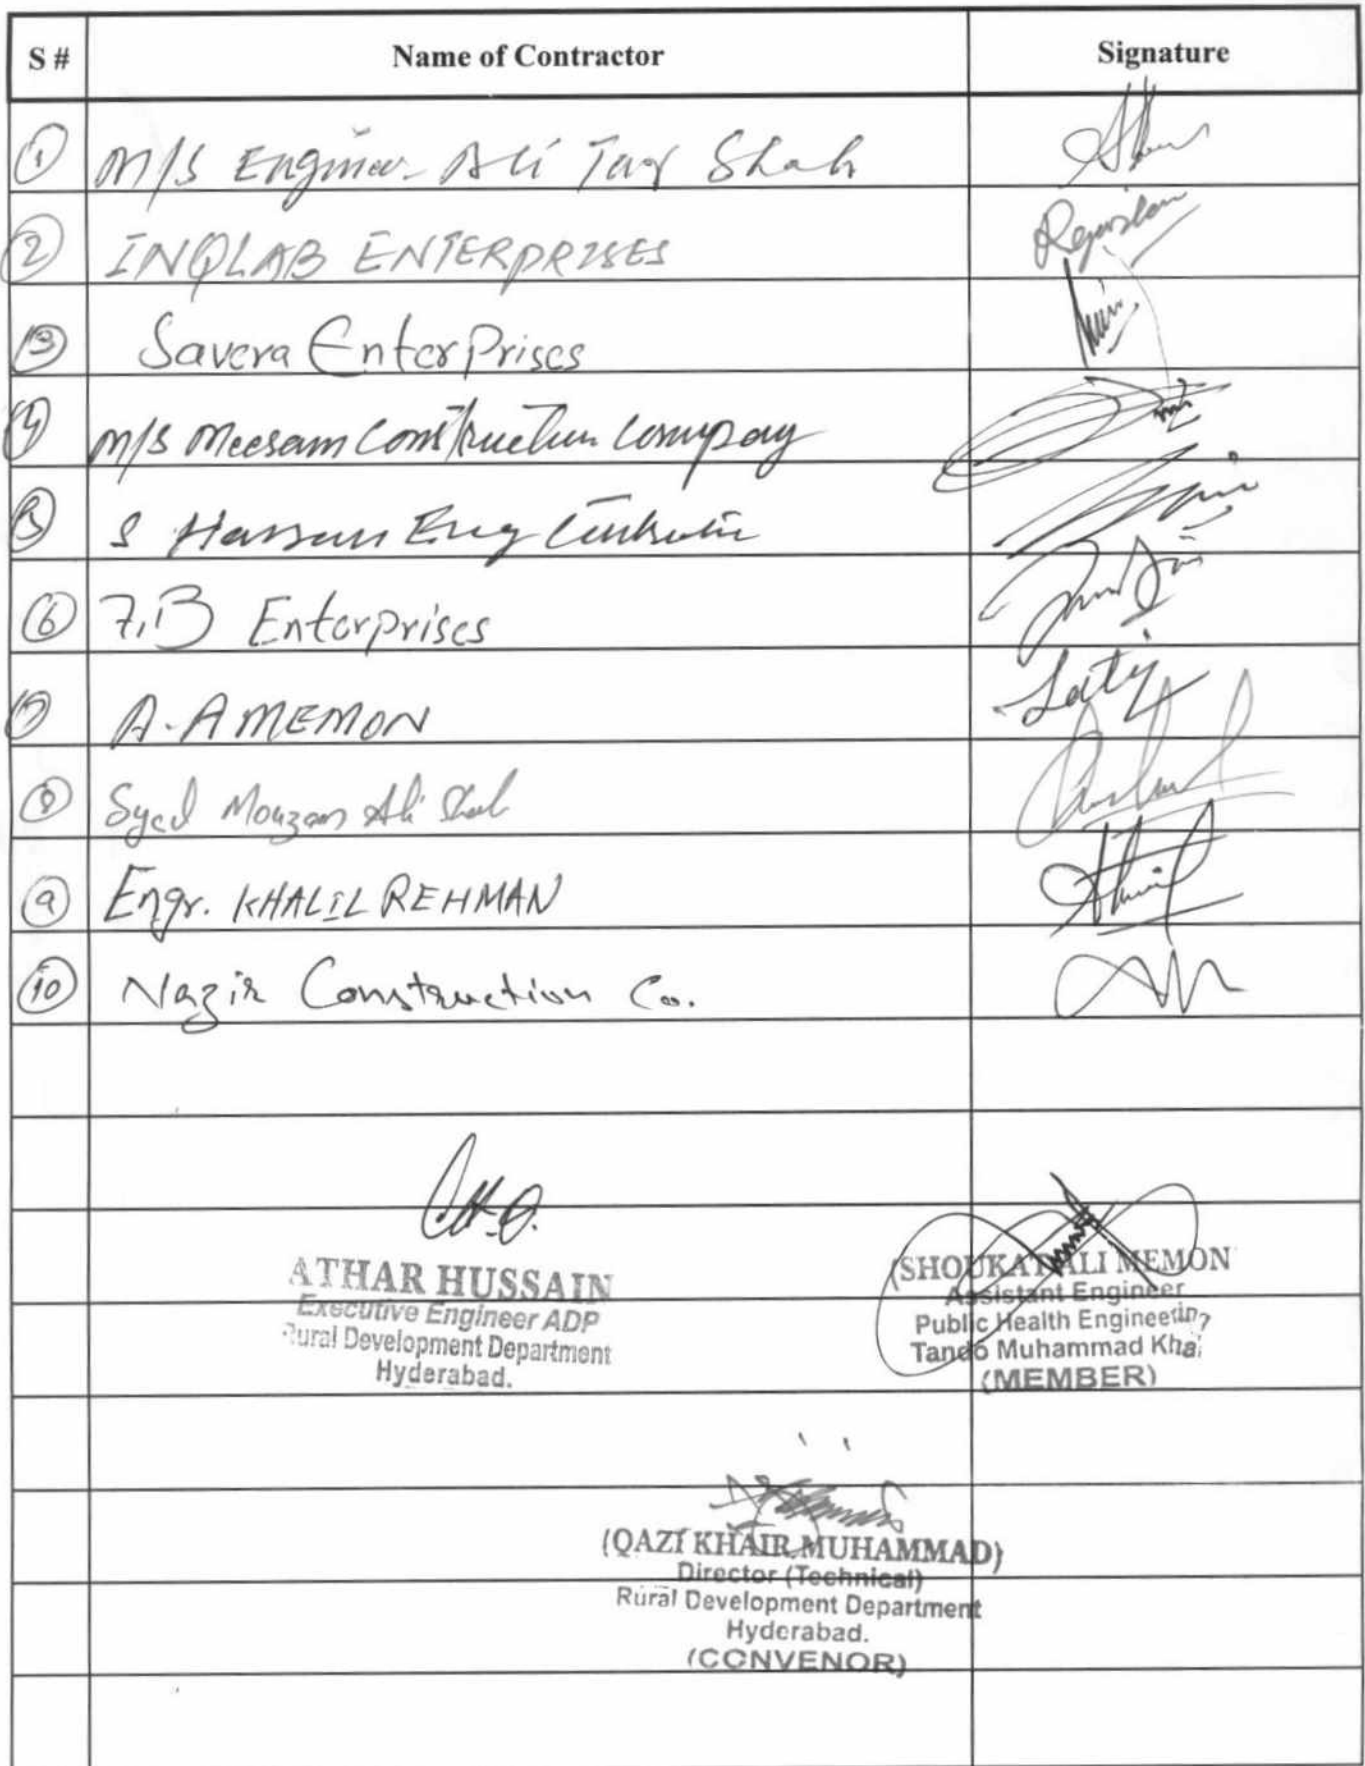 S # Name of Contractor Signature
1 M/S Engineer Ali Shah
2 INQLAB ENTERPRISES
3 Savera EnterPrises
4 M/S Meesam Construction Company
5 S Hassan Eng
6 7,B Enterprises
7 A. A MEMON
8 Syed Mouzam Ali Shah
9 Engr. KHALIL REHMAN
10 Nazir Construction Co.
ATHAR HUSSAIN
Executive Engineer ADP
Rural Development Department
Hyderabad.
(SHOUKAT ALI MEMON
Assistant Engineer
Public Health Engineering
Tando Muhammad Khan
(MEMBER)
(QAZI KHAIR MUHAMMAD)
Director (Technical)
Rural Development Department
Hyderabad.
(CONVENOR)